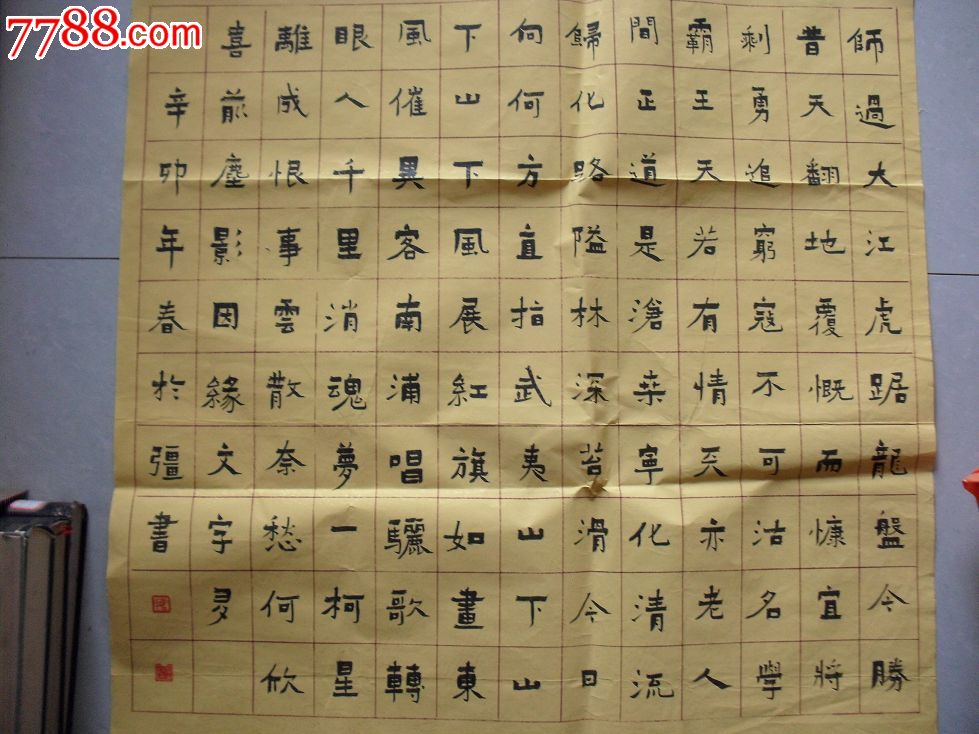 7788.com
師過大江虎踞龍盤今勝
昔天翻地覆慨而慷宜將
剩勇追窮寇不可沽名學
霸王天若有情天亦老人
間正道是滄桒寧化清流
歸化路隘林深苔滑今日
向何方直指武夷山下山
下山下風展紅旗如畫東
風催異客南浦唱驪歌轉
眼人千里消魂夢一柯星
離成恨事雲散奈愁何欣
喜前塵影因緣文字多
辛卯年春於彊書